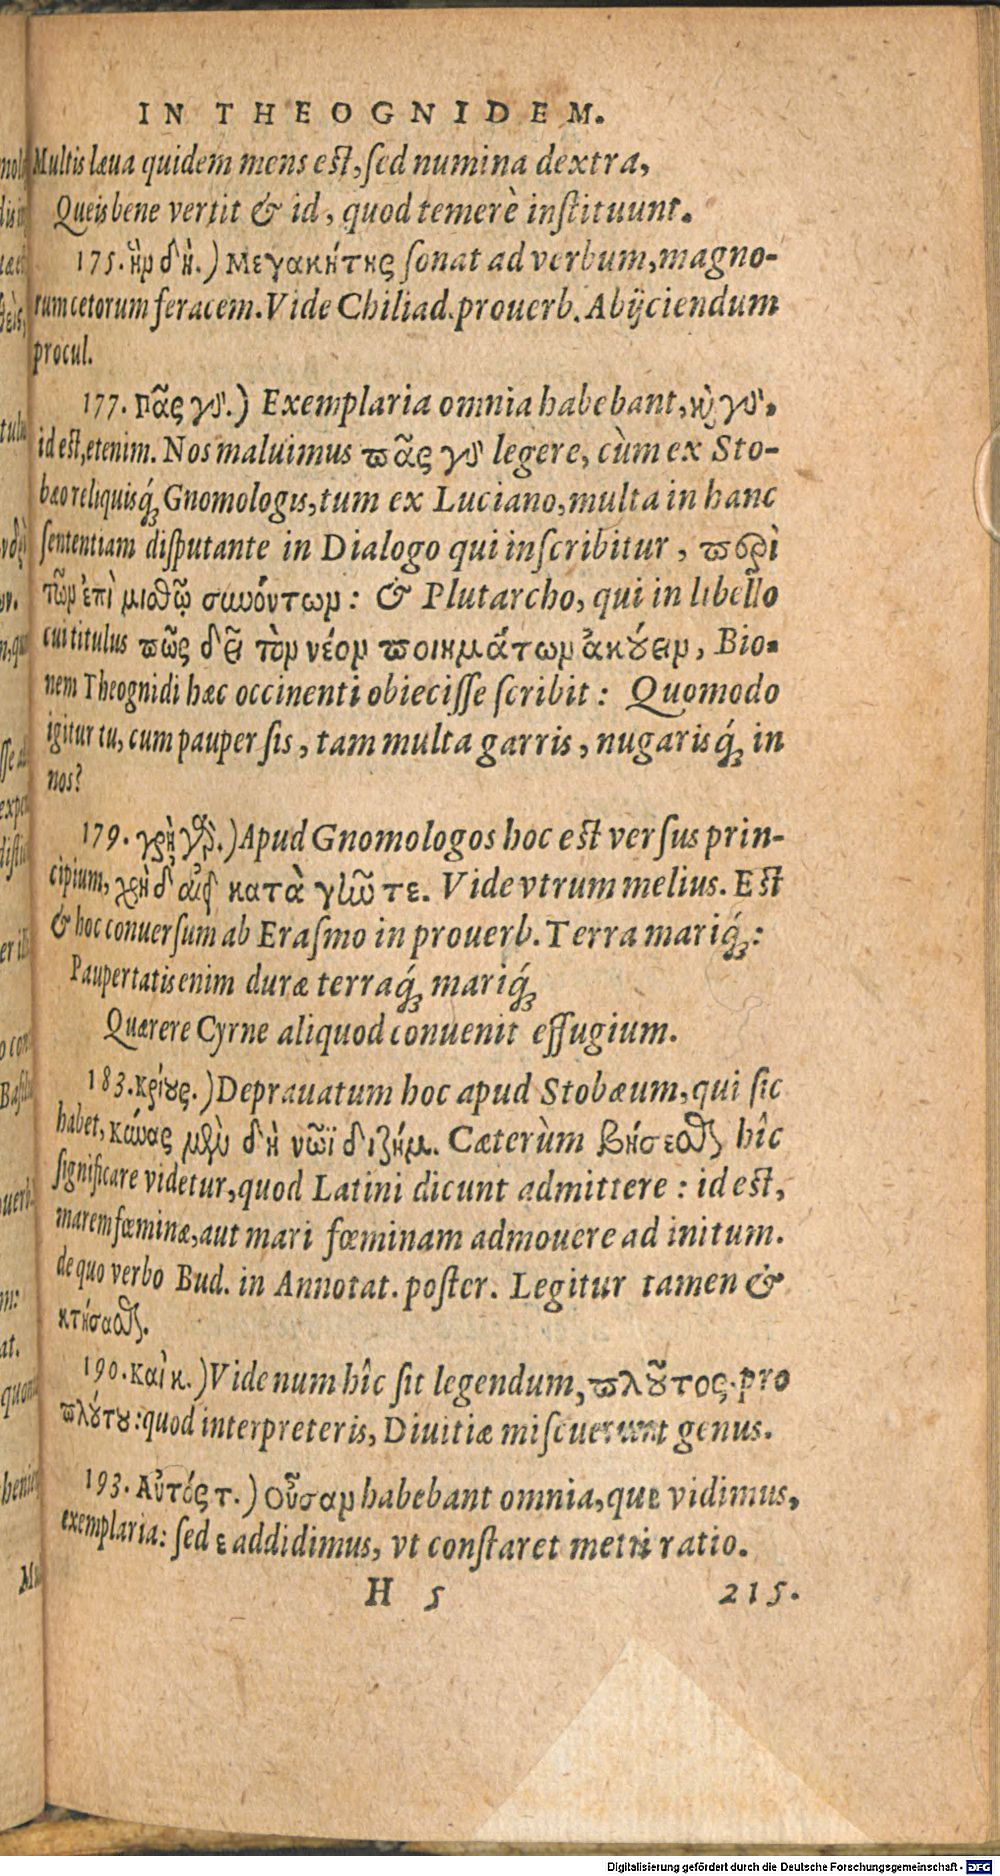 IN THEOGNIDEM.
Multis læua quidem mens est, sed numina dextra,
Queis bene vertit & id, quod temerè instituunt.
175. ἢν δὴ.) Μεγακήτης sonat ad verbum, magno-
rum cetorum feracem. Vide Chiliad. prouerb. Abijciendum
procul.
177. πᾶς γὰ.) Exemplaria omnia habebant, καὶ γὰ.
id est, etenim. Nos maluimus πᾶς γὰ legere, cùm ex Sto-
bæo reliquisq́; Gnomologis, tum ex Luciano, multa in hanc
sententiam disputante in Dialogo qui inscribitur, περὶ
τῶν ἐπὶ μισθῷ συνόντων: & Plutarcho, qui in libello
cui titulus πῶς δεῖ τὸν νέον ποιημάτων ἀκούειν, Bio-
nem Theognidi hæc occinenti obiecisse scribit: Quomodo
igitur tu, cum pauper sis, tam multa garris, nugarisq́; in
nos?
179. χρὴ γὰρ.) Apud Gnomologos hoc est versus prin-
cipium, χρὴ δ' αἰεὶ κατὰ γῆν τε. Vide vtrum melius. Est
& hoc conuersum ab Erasmo in prouerb. Terra mariq́;:
Paupertatis enim duræ terraq́; mariq́;
Quærere Cyrne aliquod conuenit effugium.
183. κριοὺς.) Deprauatum hoc apud Stobæum, qui sic
habet, κύνας μὲν δὴ νῶϊ διζήμ. Cæterùm βήσεσθαι hîc
significare videtur, quod Latini dicunt admittere: id est,
marem fœminæ, aut mari fœminam admouere ad initum.
de quo verbo Bud. in Annotat. poster. Legitur tamen &
κτήσασθαι.
190. καὶ κ.) Vide num hîc sit legendum, πλοῦτος. pro
πλούτου: quod interpreteris, Diuitiæ miscuerunt genus.
193. Αὐτός τ.) Οὖσαν habebant omnia, quæ vidimus,
exemplaria: sed ε addidimus, vt constaret metri ratio.
H 5 215.
Digitalisierung gefördert durch die Deutsche Forschungsgemeinschaft - DFG